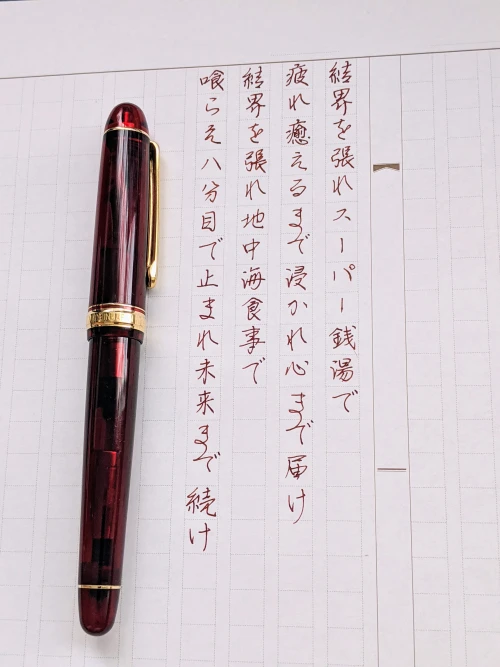 結界を張れスーパー銭湯で
疲れ癒えるまで浸かれ心まで届け
結界を張れ地中海食事で
喰らえ八分目で止まれ未来まで続け